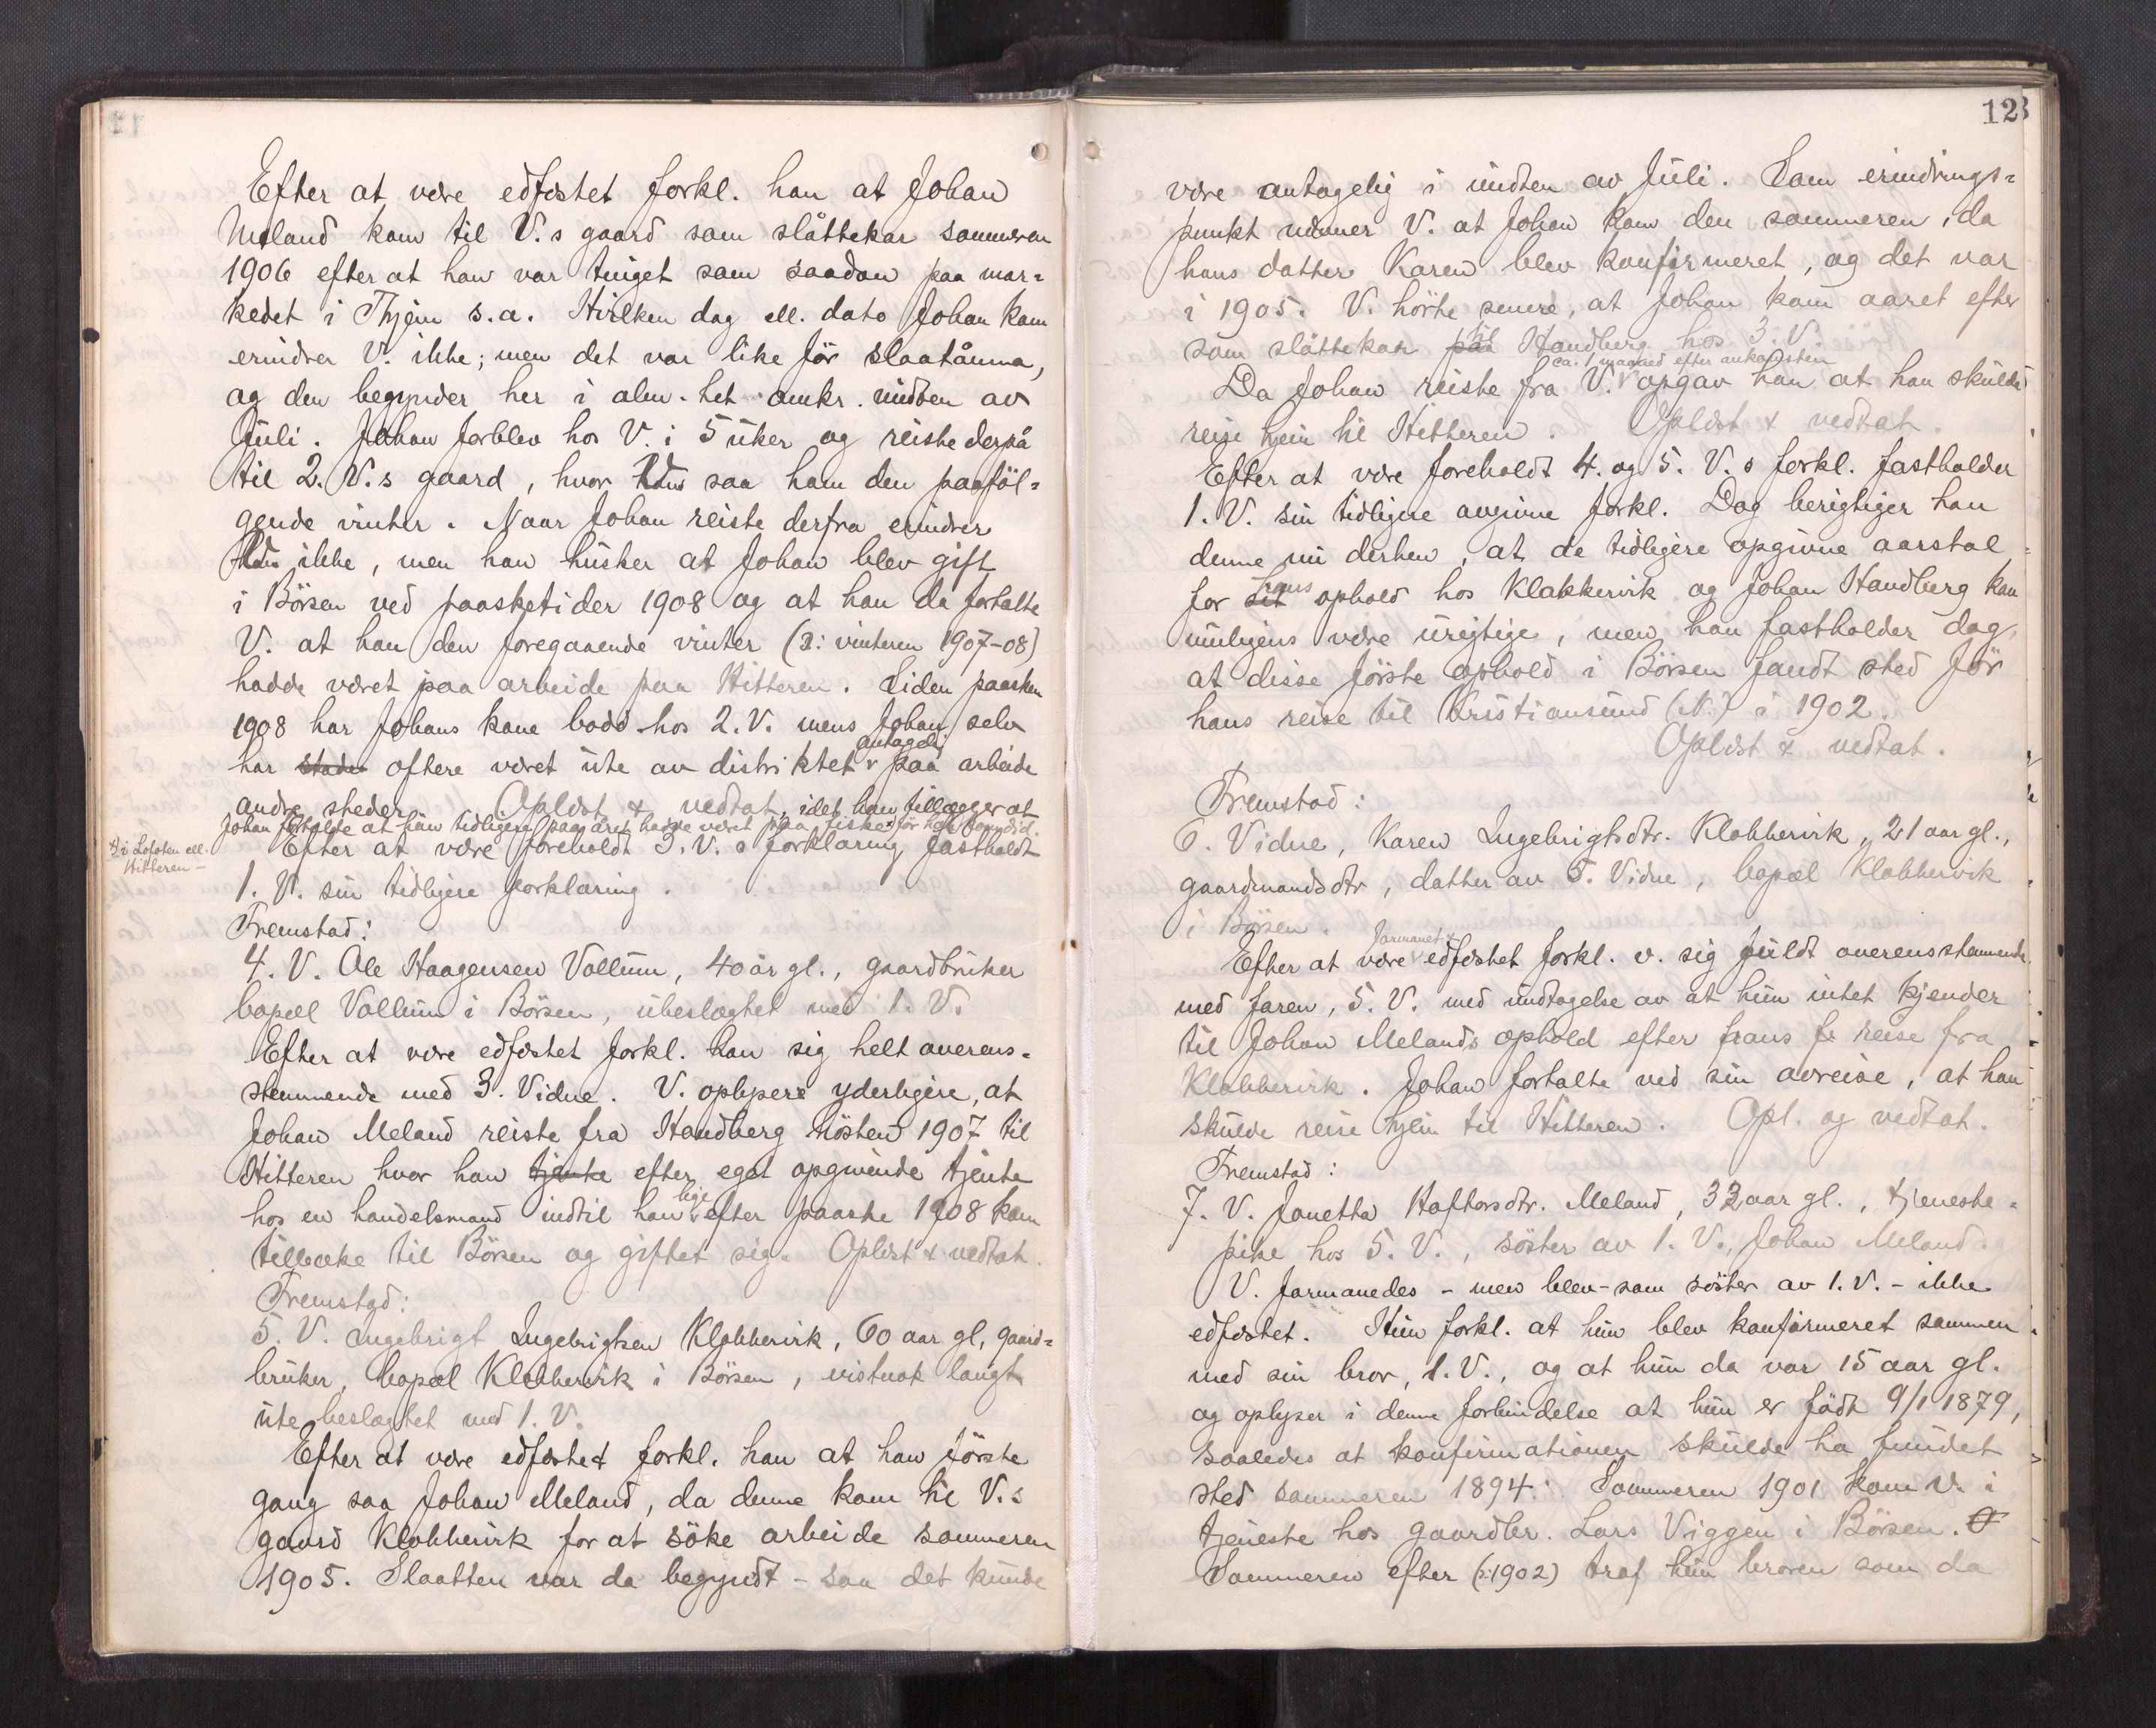 Efter at være edfæstet forkl. han at Johan
Meland kom til V.s gaard som slåttekar sommeren
1906 efter at han var tinget som saadan paa mar=
kedet i Thjem s.a. Hvilken dag ell. dato Johan kom
erindrer V. ikke; men det var like før slaatånna,
og den begynder her i alm.het omkr. midten av
Juli. Johan forblev hos V. i 5 uker og reiste derpå
til 2. V.s gaard, hvor saa ham den paaföl=
gende vinter. Naar Johan reiste derfra erindrer
ikke, men han husker at Johan blev gift
i Börsen ved paasketider 1908 og at han da fortalte
V. at han den foregaaende vinter (ɔ: vinteren 1907-08)
hadde været paa arbeide paa Hitteren. Siden paasken
1908 har Johans kone bodd hos 2. V. mens Johan selv
har stadu oftere været ute av distriktet antagelig paa arbeide
andre steder. Oplæst & vedtat, idet han tillægger at
Johan fortalde at han tidligere paa året hadde været paa fiske før han kom did.
i Lofoten ell.
Hitteren -
Efter at være foreholdt 3. V.s forklaring fastholdt
1. V. sin tidligere forklaring.
Fremstod:
4. V. Ole Haagensen Vollum, 40 år gl., gaardbruker
bopæl Vollum i Börsen, ubeslægtet med 1. V.
Efter at være edfæstet forkl. han sig helt overens=
stemmende med 3. Vidne. V. oplyser yderligere, at
Johan Meland reiste fra Handberg hösten 1907 til
Hitteren hvor han tjente efter eget opgivende tjente
hos en handelsmand indtil han lige efter paaske 1908 kom
tilbake til Börsen og giftet sig. Oplæst & vedtat.
Fremstod:
5. V. Ingebrigt Ingebrigtsen Klobbervik, 60 aar gl, gaard=
bruker, bopæl Klobbervik i Börsen, vistnok langt
ute beslægtet med 1. V.
Efter at være edfæstet forkl. han at han förste
gang saa Johan Meland, da denne kom til V.s
gaard Klobbervik for at söke arbeide sommeren
1905. Slaatten var da begyndt - saa det kunde
12
være antagelig i midten av Juli. Som erindrings=
punkt nævner V. at Johan kom den sommeren, da
hans datter Karen blev konfirmeret, og det var
i 1905. V. hörte senere, at Johan kom aaret efter
som slåttekar paa til Handberg hos 3. V.
Da Johan reiste fra V. ca. 1 maaned efter ankomsten opgav han at han skulde
reise hjem til Hitteren. Oplæst & vedtat.
Efter at være foreholdt 4. og 5. V.s forkl. fastholder
1. V. sin tidligere avgivne forkl. Dog berigtiger han
denne nu derhen, at de tidligere opgivne aarstal
for sit hans ophold hos Klakkervik og Johan Handberg kan
muligens være urigtige, men han fastholder dog,
at disse förste ophold i Börsen fandt sted för
hans reise til Kristiansund (N.) i 1902.
Oplæst & vedtat.
Fremstod:
6. Vidne, Karen Ingebrigtsdtr. Klobbervik, 21 aar gl.,
gaardmandsdtr, datter av 5. Vidne, bopæl Klobbervik
i Börsen.
Efter at være formanet & edfæstet forkl. v. sig fuldt overensstemmende
med faren, 5. V. med undtagelse av at hun intet kjender
til Johan Melands ophold efter hans fr reise fra
Klobbervik. Johan fortalte ved sin avreise, at han
skulde reise hjem til Hitteren. Opl. og vedtat.
Fremstod:
7. V. Janetta Haftorsdtr. Meland, 32 aar gl., tjeneste=
pike hos 5. V., söster av 1. V., Johan Meland.
V. formanedes - men blev - som söster av 1. V. - ikke
edfæstet. Hun forkl. at hun blev konfirmeret sammen
med sin bror, 1. V., og at hun da var 15 aar gl.
og oplyser i denne forbindelse at hun er født 9/1 1879,
saaledes at konfirmationen skulde ha fundet
sted sommeren 1894. Sommeren 1901 kom v. i
tjeneste hos gaardbr. Lars Viggen i Börsen.
Sommeren efter (ɔ: 1902) traf hun broren som da